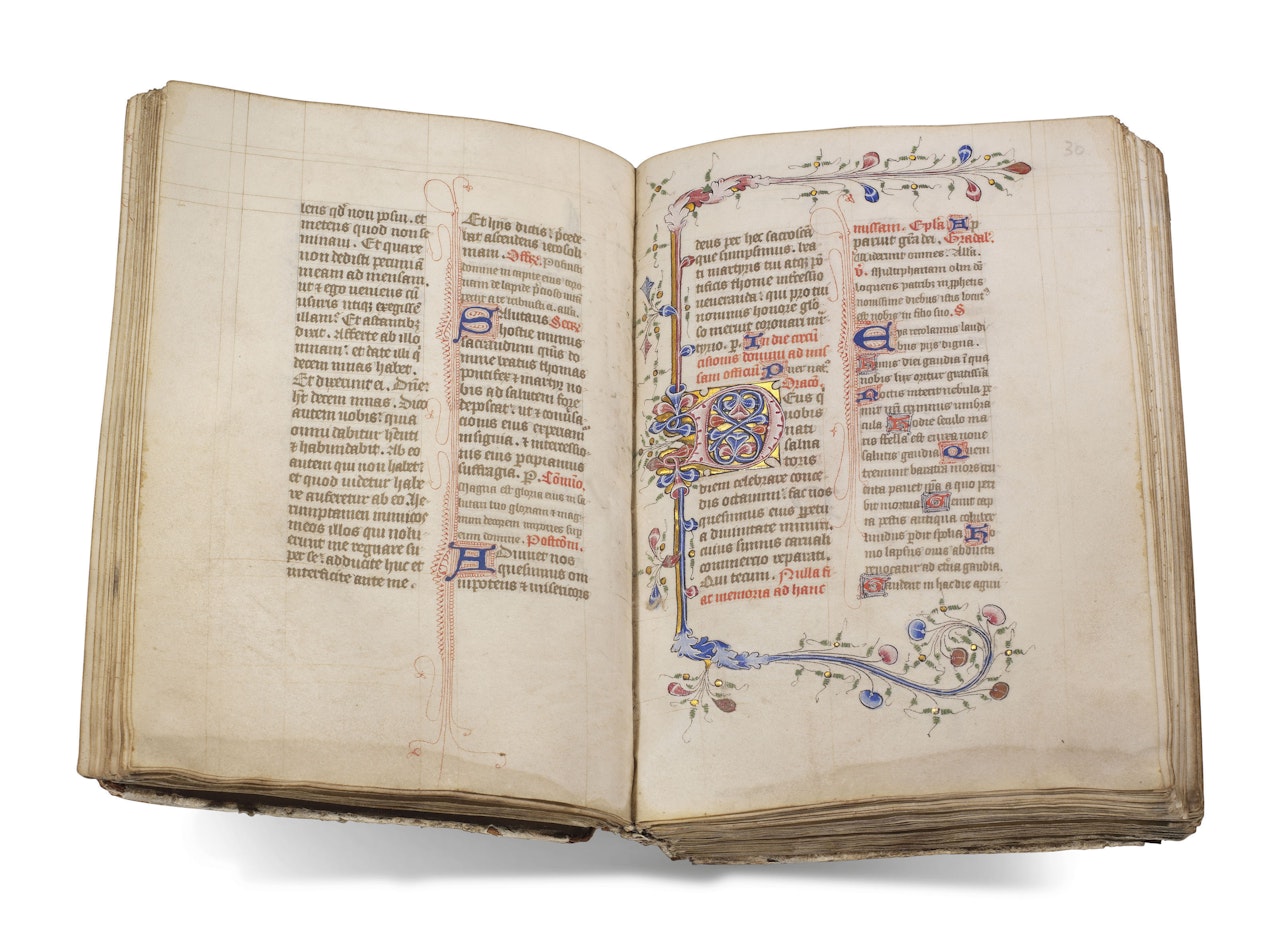 lens qd non posui. et
metens quod non se
minaui. Et quare
non dedisti pecuniā
meam ad mensam.
ut & ego veniens cū
usuris utiqz exegissē
illam. Et astantibz
dixit. Afferte ab illo
mnam. et date illi q
decem mnas habet.
Et dixerunt ei. Dñe
hēt decem mnas. Dico
autem uobis. quia
omni habenti dabitur
& habundabit. Ab eo
autem qui non habet
et quod uidetur habe
re auferetur ab eo. Ve
rumptamen inimicos
meos illos qui nolu
erunt me regnare su
per se. adducite huc et
interficite ante me.
Et hijs dictis. prece
bat ascendens ierosoli
mam. Offz. Posuisti
domine in capite eius coro
nam de lapide precioso
petijt a te tribuisti ei. alla.
Salutaris Secr.
hostie munus
sacrandum quēs do
mine beatus thomas
pontifex & martyr no
bis ad salutem fore
deposcat. ut & conuersa
cionis eius experiam
insignia. & intercessio
nis eius percipiamus
suffragia. P. Cōmio.
Magna est gloria eius in sa
lutari tuo gloriam & mag
num decorem impones sup
eum domine. Postcom.
Adiuuet nos
quesumus om
nipotens & misericors
30
deus per hec sacrosan
que sumpsimus. bea
ti martyris tui atqz pō
tificis thome intercessio
ueneranda. qui pro tui
nominis honore glo
so meruit coronari
tyrio. p. In die circū
cisionis domini ad mis
sam officiū Puer nat⁹.
Oracō.
Deus q
nobis
nati
salua
toris
diem celebrare conce
dis octauum. fac nos
quesumus eius ppetu
a diuinitate muniri.
cuius sumus carnali
commercio reparati.
Qui tecum. Nulla fi
at memoria ad hanc
missam. Epla Ap
paruit grā dei. Gradal.
Viderunt omnes. Alla.
V. Multiphariam olim
loquens patribz in prophetis
nouissime diebus istis
est nobis in filio suo. S
Eya recolamus laudi
bus pijs digna.
Huius diei gaudia in qua
nobis lux oritur gratissima
Noctis interit nebula
criminis umbra
cula Hodie seculo ma
ris stella est enixa noue
salutis gaudia Quem
tremunt baratra mors cru
enta pauet ipa a quo peri
bit mortua Gemit cap
ta pestis antiqua coluber
liuidus pdit spolia Ho
mo lapsus ouis abducta
reuocatur ad etīa gaudia.
Gaudent in hac die agmi